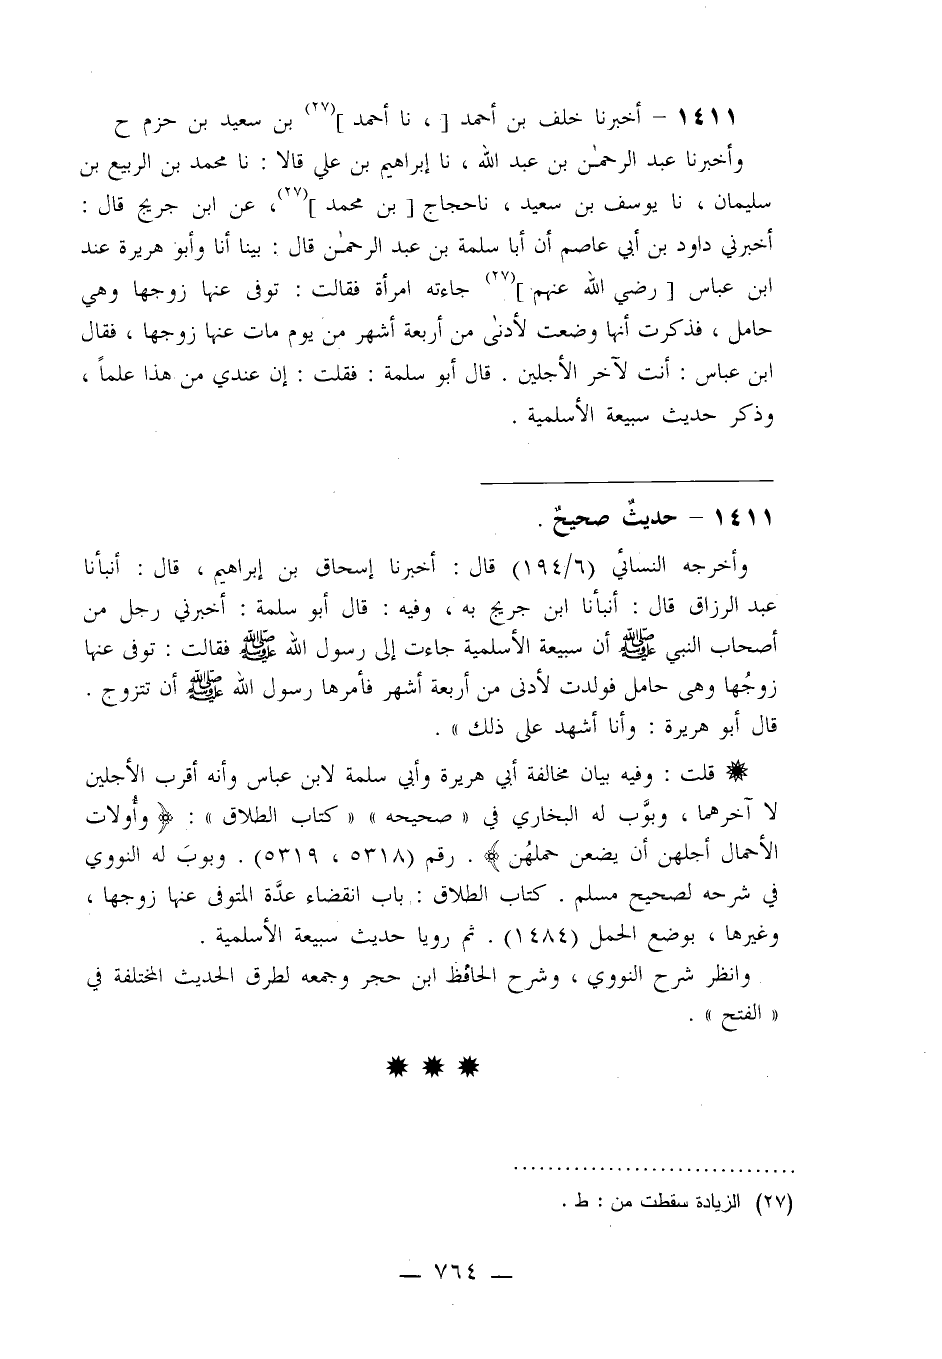 ١٤١١ – أخبرنا خلف بن أحمد [ ، نا أحمد ](٢٧) بن سعيد بن حزم ح
وأخبرنا عبد الرحمٰن بن عبد الله ، نا إبراهيم بن علي قالا : نا محمد بن الربيع بن
سليمان ، نا يوسف بن سعيد ، ناحجاج [ بن محمد ](٢٧)، عن ابن جريج قال :
أخبرني داود بن أبي عاصم أن أبا سلمة بن عبد الرحمٰن قال : بينا أنا وأبو هريرة عند
ابن عباس [ رضي الله عنهم ](٢٧) جاءته امرأة فقالت : توفى عنها زوجها وهي
حامل ، فذكرت أنها وضعت لأدنىٰ من أربعة أشهر من يوم مات عنها زوجها ، فقال
ابن عباس : أنت لآخر الأجلين . قال أبو سلمة : فقلت : إن عندي من هذا علماً ،
وذكر حديث سبيعة الأسلمية .
١٤١١ – حديثٌ صحيحٌ .
وأخرجه النسائي (١٩٤/٦) قال : أخبرنا إسحاق بن إبراهيم ، قال : أنبأنا
عبد الرزاق قال : أنبأنا ابن جريج به ، وفيه : قال أبو سلمة : أخبرني رجل من
أصحاب النبي ﷺ أن سبيعة الأسلمية جاءت إلى رسول الله ﷺ فقالت : توفى عنها
زوجُها وهى حامل فولدت لأدنى من أربعة أشهر فأمرها رسول الله ﷺ أن تتزوج .
قال أبو هريرة : وأنا أشهد على ذلك » .
✸ قلت : وفيه بيان مخالفة أبي هريرة وأبي سلمة لابن عباس وأنه أقرب الأجلين
لا آخرهما ، وبوَّب له البخاري في « صحيحه » « كتاب الطلاق » : ﴿ وأُولات
الأحمال أجلهن أن يضعن حملهُن ﴾ . رقم (٥٣١٨ ، ٥٣١٩) . وبوبَ له النووي
في شرحه لصحيح مسلم . كتاب الطلاق : باب انقضاء عدَّة المتوفى عنها زوجها ،
وغيرها ، بوضع الحمل (١٤٨٤) . ثم رويا حديث سبيعة الأسلمية .
وانظر شرح النووي ، وشرح الحافظ ابن حجر وجمعه لطرق الحديث المختلفة في
« الفتح » .
✸ ✸ ✸
(٢٧) الزيادة سقطت من : ط .
— ٧٦٤ —